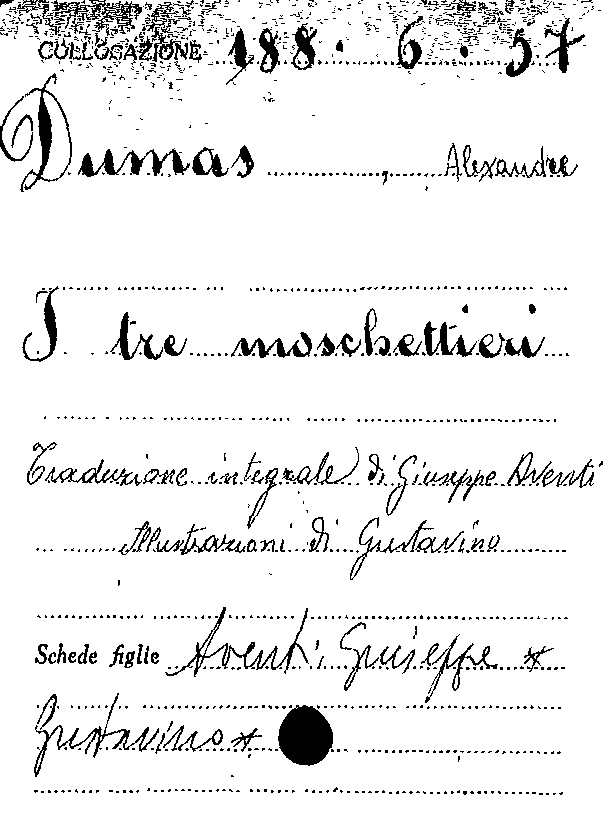 COLLOCAZIONE 188. 6. 57
Dumas, Alexandre
I tre moschettieri
Traduzione integrale di Giuseppe Aventi
Illustrazioni di Gustavino
Schede figlie Aventi, Giuseppe *
Gustavino *